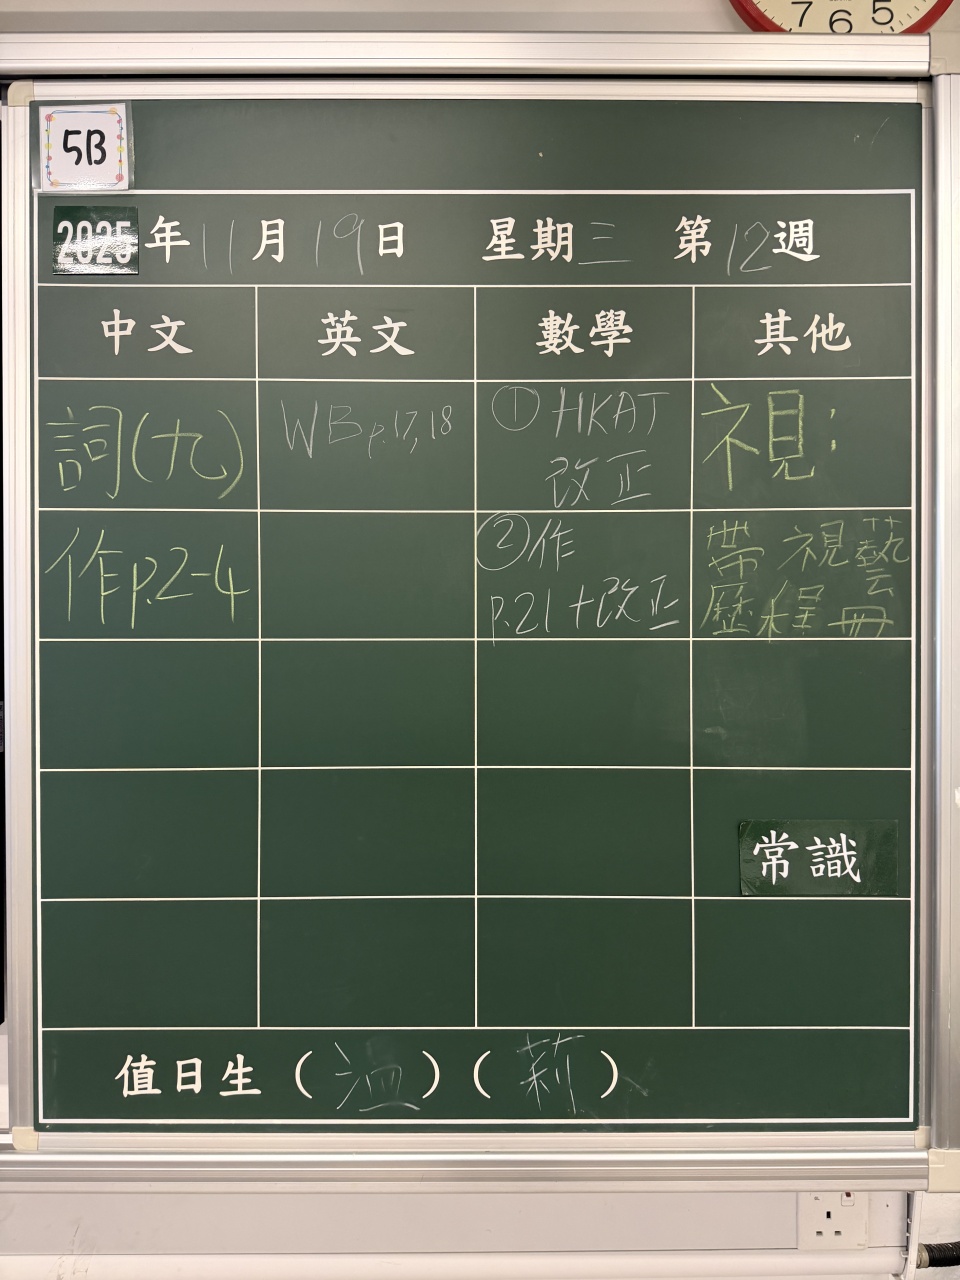 7 6 5
5B
2025年11月19日 星期三 第12週
中文 英文 數學 其他
詞(九) WB p.17,18 ①HKAT 視:
改正
作p.2-4 ②作 帶視藝
p.21+改正 歷程冊
常識
值日生(溫)(莉)